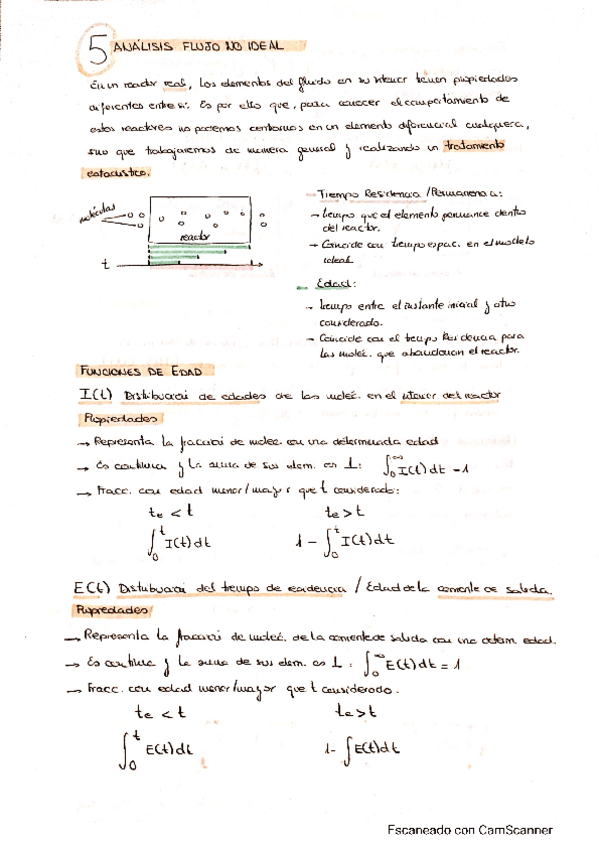 5 ANÁLISIS FLUJO NO IDEAL
En un reactor real, los elementos del fluido en su interior tienen propiedades
diferentes entre sí. Es por ello que, para conocer el comportamiento de
estos reactores no podemos centrarnos en un elemento diferencial cualquiera,
sino que trabajaremos de manera general y realizando un tratamiento
estadístico.
moléculas
reactor
t
Tiempo Residencia / Permanencia:
→ tiempo que el elemento permanece dentro
del reactor.
→ Coincide con tiempo espac. en el modelo
ideal
Edad:
→ tiempo entre el instante inicial y otro
considerado.
→ Coincide con el tiempo Residencia para
las moléc. que abandonan el reactor.
FUNCIONES DE EDAD
I(t) Distribución de edades de las moléc. en el interior del reactor
Propiedades
→ Representa la fracción de moléc. con una determinada edad
→ Es continua y la suma de sus elem. es 1: ∫₀^∞ I(t) dt = 1
→ Fracc. con edad menor/mayor que t considerado:
te < t te > t
∫₀^t I(t) dt 1 - ∫₀^t I(t) dt
E(t) Distribución del tiempo de residencia / Edad de la corriente de salida.
Propiedades
→ Representa la fracción de moléc. de la corriente de salida con una determ. edad.
→ Es continua y la suma de sus elem. es 1: ∫₀^∞ E(t) dt = 1
→ Fracc. con edad menor/mayor que t considerado.
te < t te > t
∫₀^t E(t) dt 1- ∫ E(t) dt
Escaneado con CamScanner